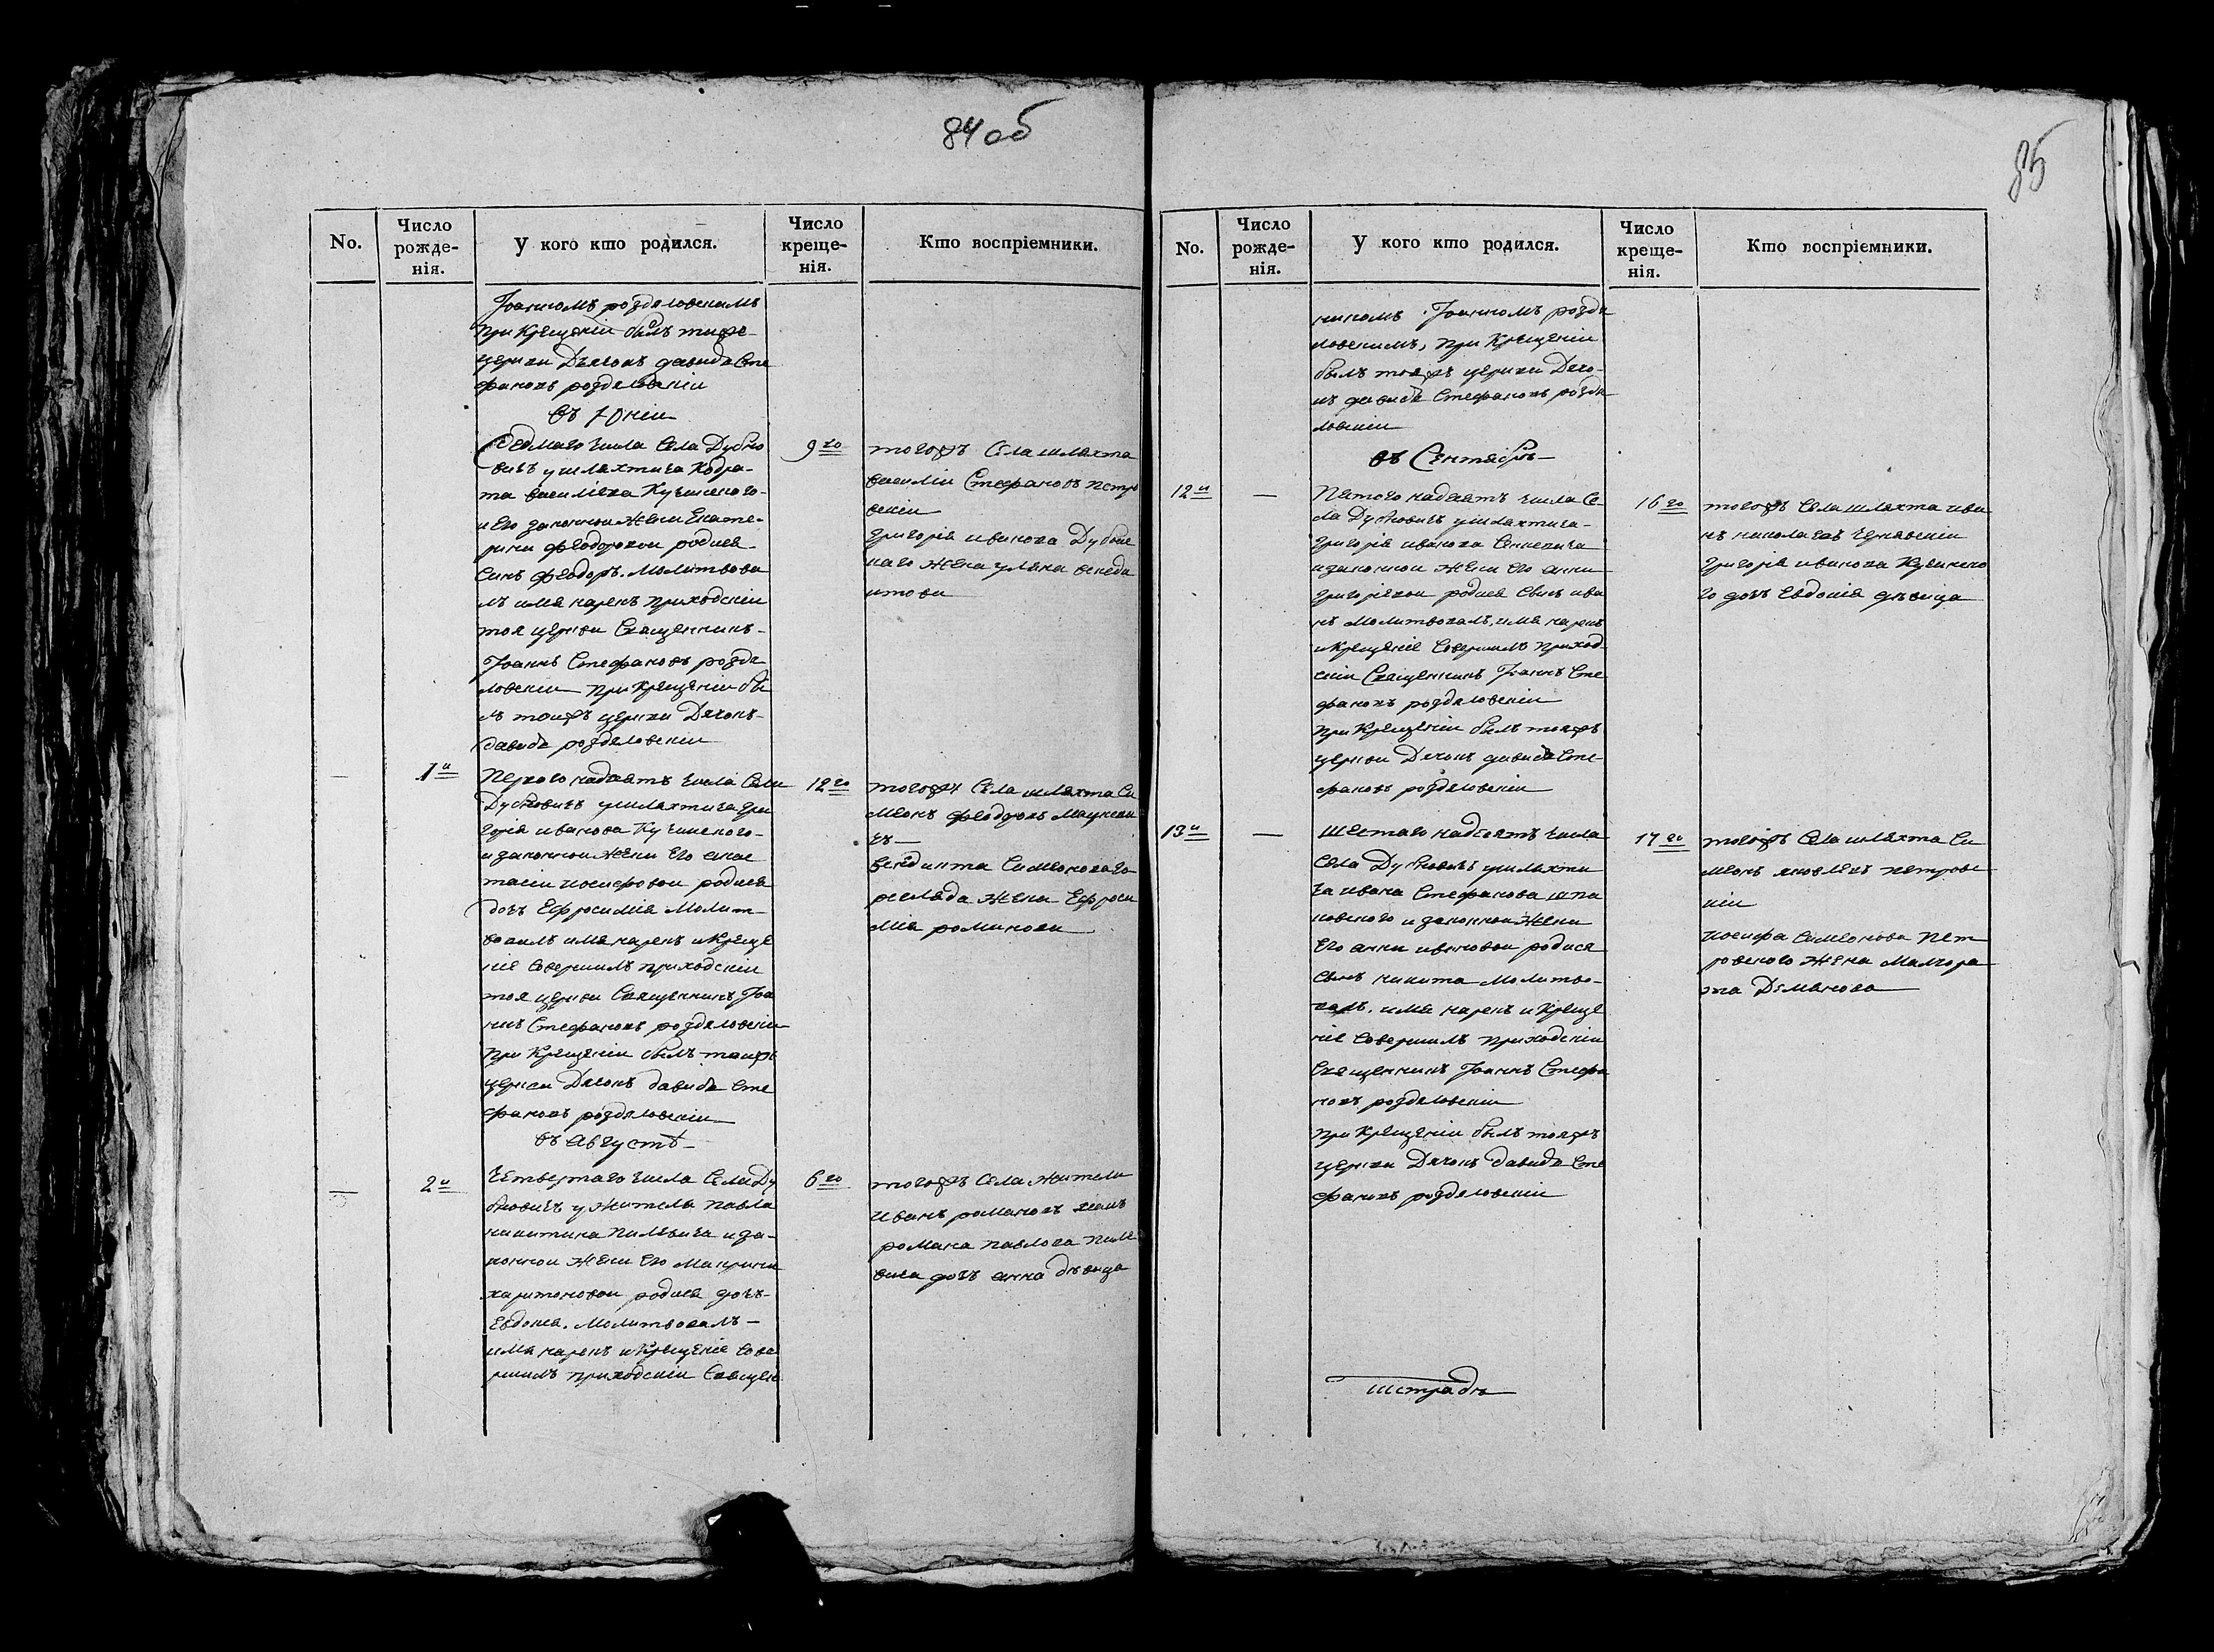 84 об
No.
Число рожде-нія.
У кого кто родился.
Число креще-нія.
Кто воспріемники.
Іоанномъ розделовскимъ
при крещеніи былъ тояже
церкви Дячокъ давидъ Сте
фановъ розделовскіи
въ Іюніи
Седмаго числа Села Дубно
вичъ у шляхтича Кодра-
та василіева Кучинского
и Его законнои жени Екате-
рини феодоровои родися
Синъ феодоръ. Молитвова
лъ имя нарекъ приходскіи
тоя церкви Священникъ
Іоаннъ Стефановъ розде
ловскіи при крещеніи бы
лъ тояжъ церкви Дячокъ
давидъ розделовскіи
9го
тогожъ Села шляхта
василіи Стефановъ петро
вскіи
Григорія иванова Дубне
каго жена уляна
1я
Первого надцять числа Села
Дубновичъ у шляхтича Гри
горія иванова Кучинского
и законнои жени Его анас
тасіи иосифовои родися
дочъ Ефросимія Молит
вовалъ имя нарекъ и креще
ніе Совершилъ приходскіи
тоя церкви Священникъ Іоа
ннъ Стефановъ розделовскіи
при крещеніи былъ тояжъ
церкви Дячокъ давидъ Сте
фановъ розделовскіи
12го
тогожъ Села шляхта Си
меонъ феодоровъ
чъ
венедикта Симеонова
жена Ефроси
мія романова
въ Августѣ
— 2я
Четвертаго числа Села Ду
бновичъ у жителя павла
никитина и за-
коннои жени Его Макрини
харитоновои родися дочъ
Евдокія. Молитвовалъ
имя нарекъ и крещеніе Сове
ршилъ приходскіи Священ
6го
тогожъ Села жители
иванъ романовъ
романа павлова
вича дочъ анна дѣвица
85
No.
Число рожде-нія.
У кого кто родился.
Число креще-нія.
Кто воспріемники.
никомъ Іоанномъ розде
ловскимъ, при крещеніи
былъ тояжъ церкви Дячо-
къ давидъ Стефановъ розде
ловскіи
въ Сентябрѣ
12я —
Пятого надцять числа Се-
ла Дубновичъ у шляхтича
Григорія иванова Сенкевича
и законнои жени Его анни
григоріевои родися Синъ ива
нъ Молитвовалъ, имя нарекъ
и крещеніе Совершилъ приход-
скіи Священникъ Іоаннъ Сте
фановъ розделовскіи
при крещеніи былъ тояжъ
церкви Дячокъ давидъ Сте-
фановъ розделовскіи
16го
тогожъ Села шляхта ива
нъ николаевъ Чернявскіи
григорія иванова Кучинско
го дочъ Евдокія дѣвица
13я —
Шестаго надцять числа
Села Дубновичъ у шляхти
ча ивана Стефанова шпа
ковского и законнои жени
Его анни ивановои родися
Синъ никита Молитво-
валъ, имя нарекъ и креще
ніе Совершилъ приходскіи
Священникъ Іоаннъ Стефа
новъ розделовскіи
при крещеніи былъ тояжъ
церкви Дячокъ давидъ Сте
фановъ розделовскіи
17го
тогожъ Села шляхта Си
меонъ яковлевъ петровс
кіи
иосифа Симеонова пет
ровского жена Малгоре
та Доманова